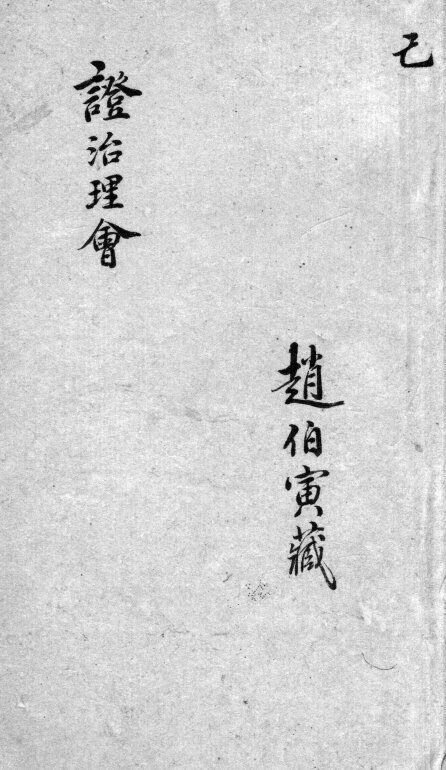 己
趙伯寅藏
證治理會